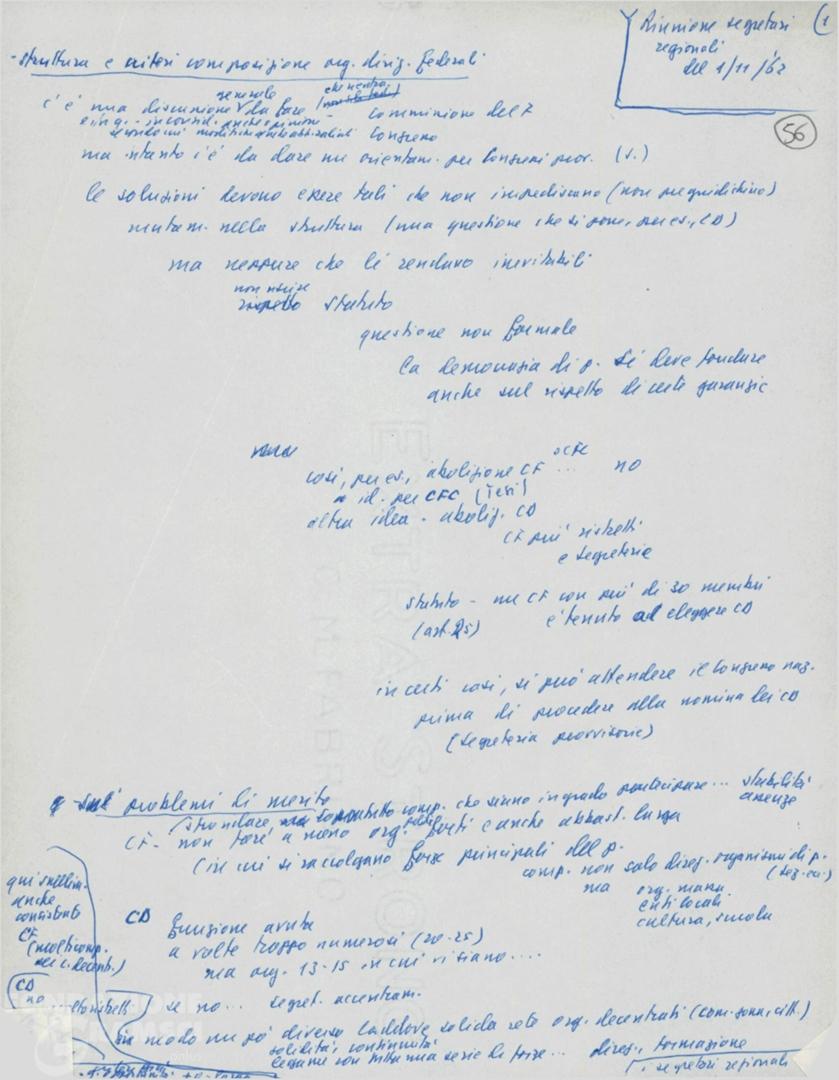 Riunione segretari
regionali
del 1/11/62
(1
56
- struttura e criteri composizione org. dirig. federali
generale
c'è una discussione da fare commissione del
Congresso
ma intanto c'è da dare un orientam. per Congressi prov. (s.)
le soluzioni devono essere tali che non impediscano (non pregiudichino)
mutam. nella struttura (una questione che si pone, per es., CD)
ma neppure che li rendano inevitabili
non uscire
rispetto statuto
questione non formale
la democrazia di p. si deve fondare
anche sul rispetto di certe garanzie
così, per es., abolizione CF o CFC ... no
id. per CFC (Tesi)
altra idea - aboliz. CD
CF più ristretti
e segreterie
statuto - un CF con più di 30 membri
(art. 25) è tenuto ad eleggere CD
in certi casi, si può attendere il Congresso naz.
prima di procedere alla nomina dei CD
(segreteria provvisoria)
problemi di merito
soprattutto comp. che siano in grado partecipare ... stabilità
assenze
CF - non farà a meno org. forti e anche abbast. larga
(in cui si raccolgano forze principali del p.
comp. non solo direz. organismi di p.
ma org. massa
enti locali
cultura, scuola
qui
anche
CF
(molti comp.
dei c. decentr.)
CD funzione avuta
a volte troppo numerosi (20-25)
ma org. 13-15 in cui vi siano ....
CD
no
se no... segret. accentram.
in modo un pò diverso laddove solida rete org. decentrati (com. zona, citt.)
solidità, continuità
legame con tutta una serie di forze ... direz., formazione
segretari regionali